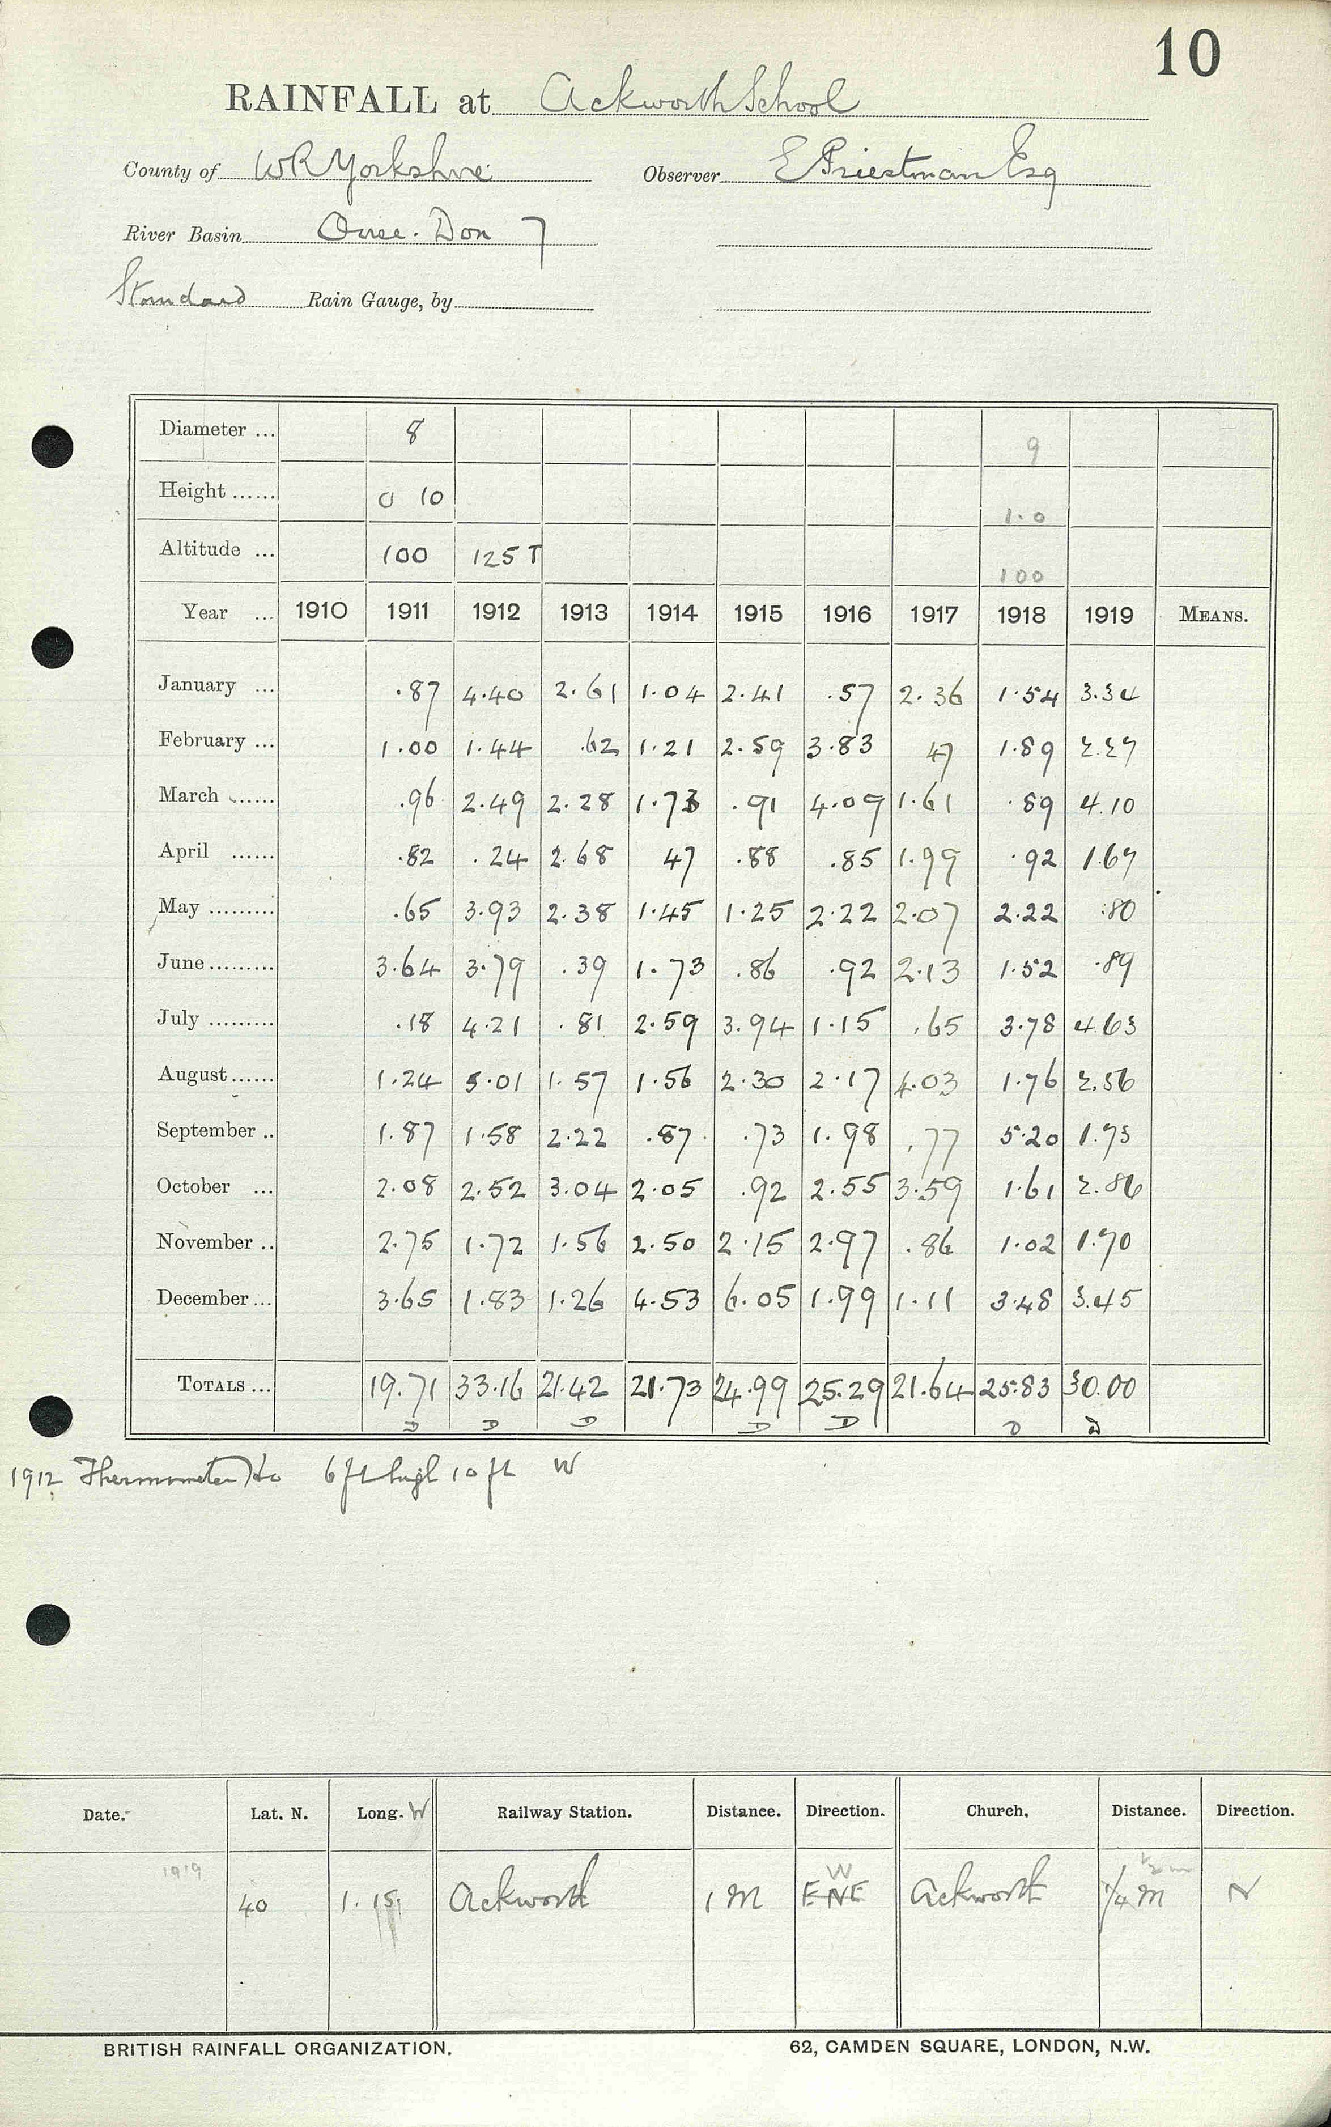 10
RAINFALL at Ackworth School
County of WR Yorkshire Observer E Priestman Esq
River Basin Ouse. Don 7
Standard Rain Gauge, by
Diameter ... 8 9
Height ...... 0 10 1.0
Altitude ... 100 125 T 100
Year ... 1910 1911 1912 1913 1914 1915 1916 1917 1918 1919 MEANS.
January ... .87 4.40 2.61 1.04 2.41 .57 2.36 1.54 3.34
February ... 1.00 1.44 .62 1.21 2.59 3.83 47 1.89 2.27
March ...... .96 2.49 2.28 1.73 .91 4.09 1.61 .89 4.10
April ...... .82 .24 2.68 47 .88 .85 1.99 .92 1.67
May ......... .65 3.93 2.38 1.45 1.25 2.22 2.07 2.22 .80
June ......... 3.64 3.79 .39 1.73 .86 .92 2.13 1.52 .89
July ......... .18 4.21 .81 2.59 3.94 1.15 .65 3.78 4.63
August ...... 1.24 5.01 1.57 1.56 2.30 2.17 4.03 1.76 2.56
September .. 1.87 1.58 2.22 .87 .73 1.98 .77 5.20 1.73
October ... 2.08 2.52 3.04 2.05 .92 2.55 3.59 1.61 2.86
November .. 2.75 1.72 1.56 2.50 2.15 2.97 .86 1.02 1.70
December ... 3.65 1.83 1.26 4.53 6.05 1.99 1.11 3.48 3.45
TOTALS ... 19.71 33.16 21.42 21.73 24.99 25.29 21.64 25.83 30.00
D D D D D D D
1912 Thermometer 6 ft high 10 ft W
Date. Lat. N. Long. W Railway Station. Distance. Direction. Church. Distance. Direction.
1919 W ½ m
40 1.15 Ackworth 1 M ENE Ackworth ¼ M N
BRITISH RAINFALL ORGANIZATION. 62, CAMDEN SQUARE, LONDON, N.W.